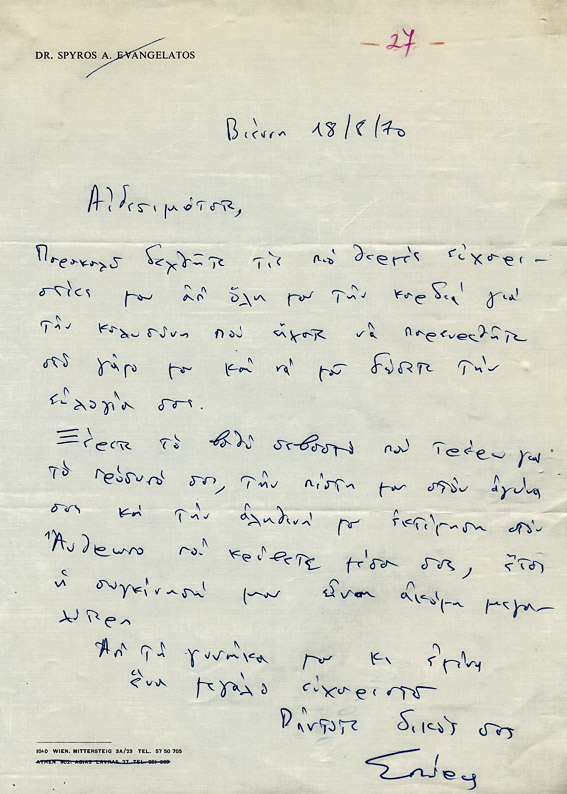 DR. SPYROS A. EVANGELATOS
- 27 -
Βιέννη 18/8/70
Αἰδεσιμότατε,
Παρακαλῶ δεχθῆτε τίς πιό θερμές εὐχαρι-
στίες μου ἀπ' ὅλη μου τήν καρδιά γιά
τήν καλωσύνη πού εἴχατε νά παρευρεθῆτε
στό γάμο μου καί νά μοῦ δώσετε τήν
εὐλογία σας.
Ξέρετε τό βαθύ σεβασμό πού τρέφω γιά
τό πρόσωπό σας, τήν πίστη μου στόν ἀγώνα
σας καί τήν ἀληθινή μου ἐκτίμηση στόν
Ἄνθρωπο πού κρύβετε μέσα σας, ἔτσι
ἡ συγκίνησή μου εἶναι ἀκόμη μεγα-
λύτερη
Ἀπ' τή γυναίκα μου κι ἐμένα
ἕνα μεγάλο εὐχαριστῶ
Πάντοτε δικός σας
Σπύρος
1040 WIEN. MITTERSTEIG 3A/23 TEL. 57 50 705
ATHEN 902. AGIAS LAVRAS 27 TEL.